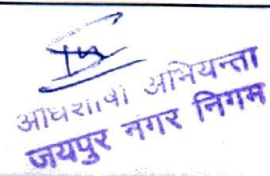 अधिशाषी अभियन्ता
जयपुर नगर निगम